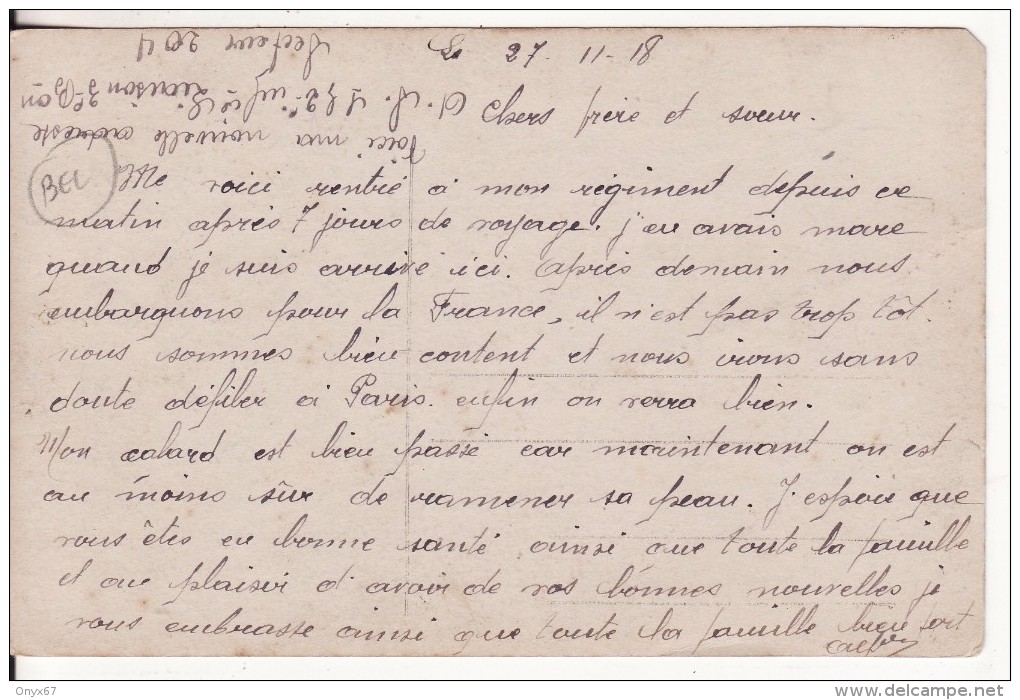 Le 27-11-18
Chers frère et sœur.
Me voici rentré à mon régiment depuis ce
matin après 7 jours de voyage. j'en avais mare
quand je suis arrivé ici. après demain nous
embarquons pour la France, il n'est pas trop tôt.
nous sommes bien content et nous irons sans
doute défiler à Paris. enfin on verra bien.
Mon cafard est bien passé car maintenant on est
au moins sûr de ramener sa peau. J'espère que
vous êtes en bonne santé ainsi que toute la famille
et au plaisir d'avoir de vos bonnes nouvelles je
vous embrasse ainsi que toute la famille bien fort
Voici ma nouvelle adresse
Secteur 204
BEL
Onyx67
delcampe.net